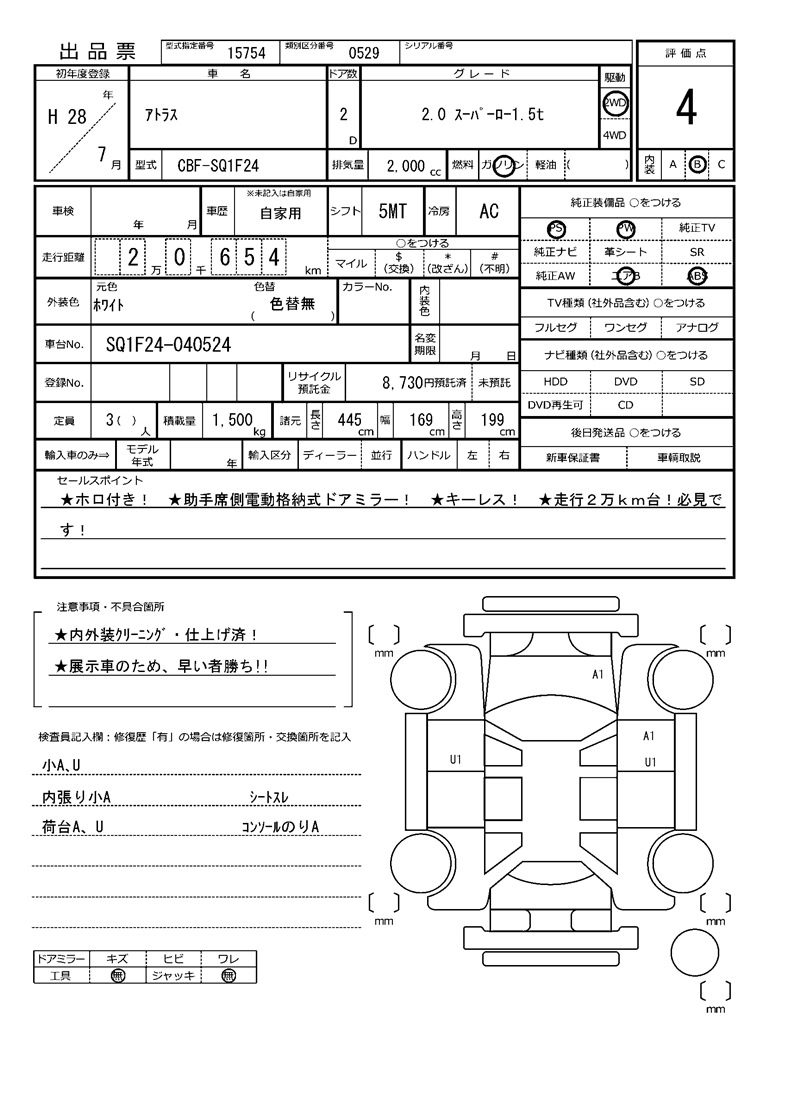 出品票 型式指定番号 15754 類別区分番号 0529 シリアル番号
評価点
4
内装 A B C
初年度登録 車名 ドア数 グレード 駆動
H 28 年 7 月 アトラス 2 D 2.0 スーパーロー1.5t 2WD 4WD
型式 CBF-SQ1F24 排気量 2,000 cc 燃料 ガソリン 軽油 ( )
車検 年 月 車歴 ※未記入は自家用 自家用 シフト 5MT 冷房 AC
走行距離 2 万 0 千 6 5 4 km
○をつける
マイル $(交換) *(改ざん) #(不明)
外装色 元色 ホワイト 色替 ( 色替無 ) カラーNo. 内装色
車台No. SQ1F24-040524 名変期限 月 日
登録No. リサイクル預託金 8,730円預託済 未預託
定員 3( ) 人 積載量 1,500 kg 諸元 長さ 445 cm 幅 169 cm 高さ 199 cm
輸入車のみ⇒ モデル年式 年 輸入区分 ディーラー 並行 ハンドル 左 右
純正装備品 ○をつける
PS PW 純正TV
純正ナビ 革シート SR
純正AW エアB ABS
TV種類(社外品含む) ○をつける
フルセグ ワンセグ アナログ
ナビ種類(社外品含む) ○をつける
HDD DVD SD
DVD再生可 CD
後日発送品 ○をつける
新車保証書 車輌取説
セールスポイント
★ホロ付き! ★助手席側電動格納式ドアミラー! ★キーレス! ★走行2万km台!必見で
す!
注意事項・不具合箇所
★内外装クリーニング・仕上げ済!
★展示車のため、早い者勝ち!!
検査員記入欄:修復歴「有」の場合は修復箇所・交換箇所を記入
小A、U
内張り小A シートスレ
荷台A、U コンソールのりA
ドアミラー キズ ヒビ ワレ
工具 無 ジャッキ 無
mm mm
A1
A1
U1 U1
mm mm
mm